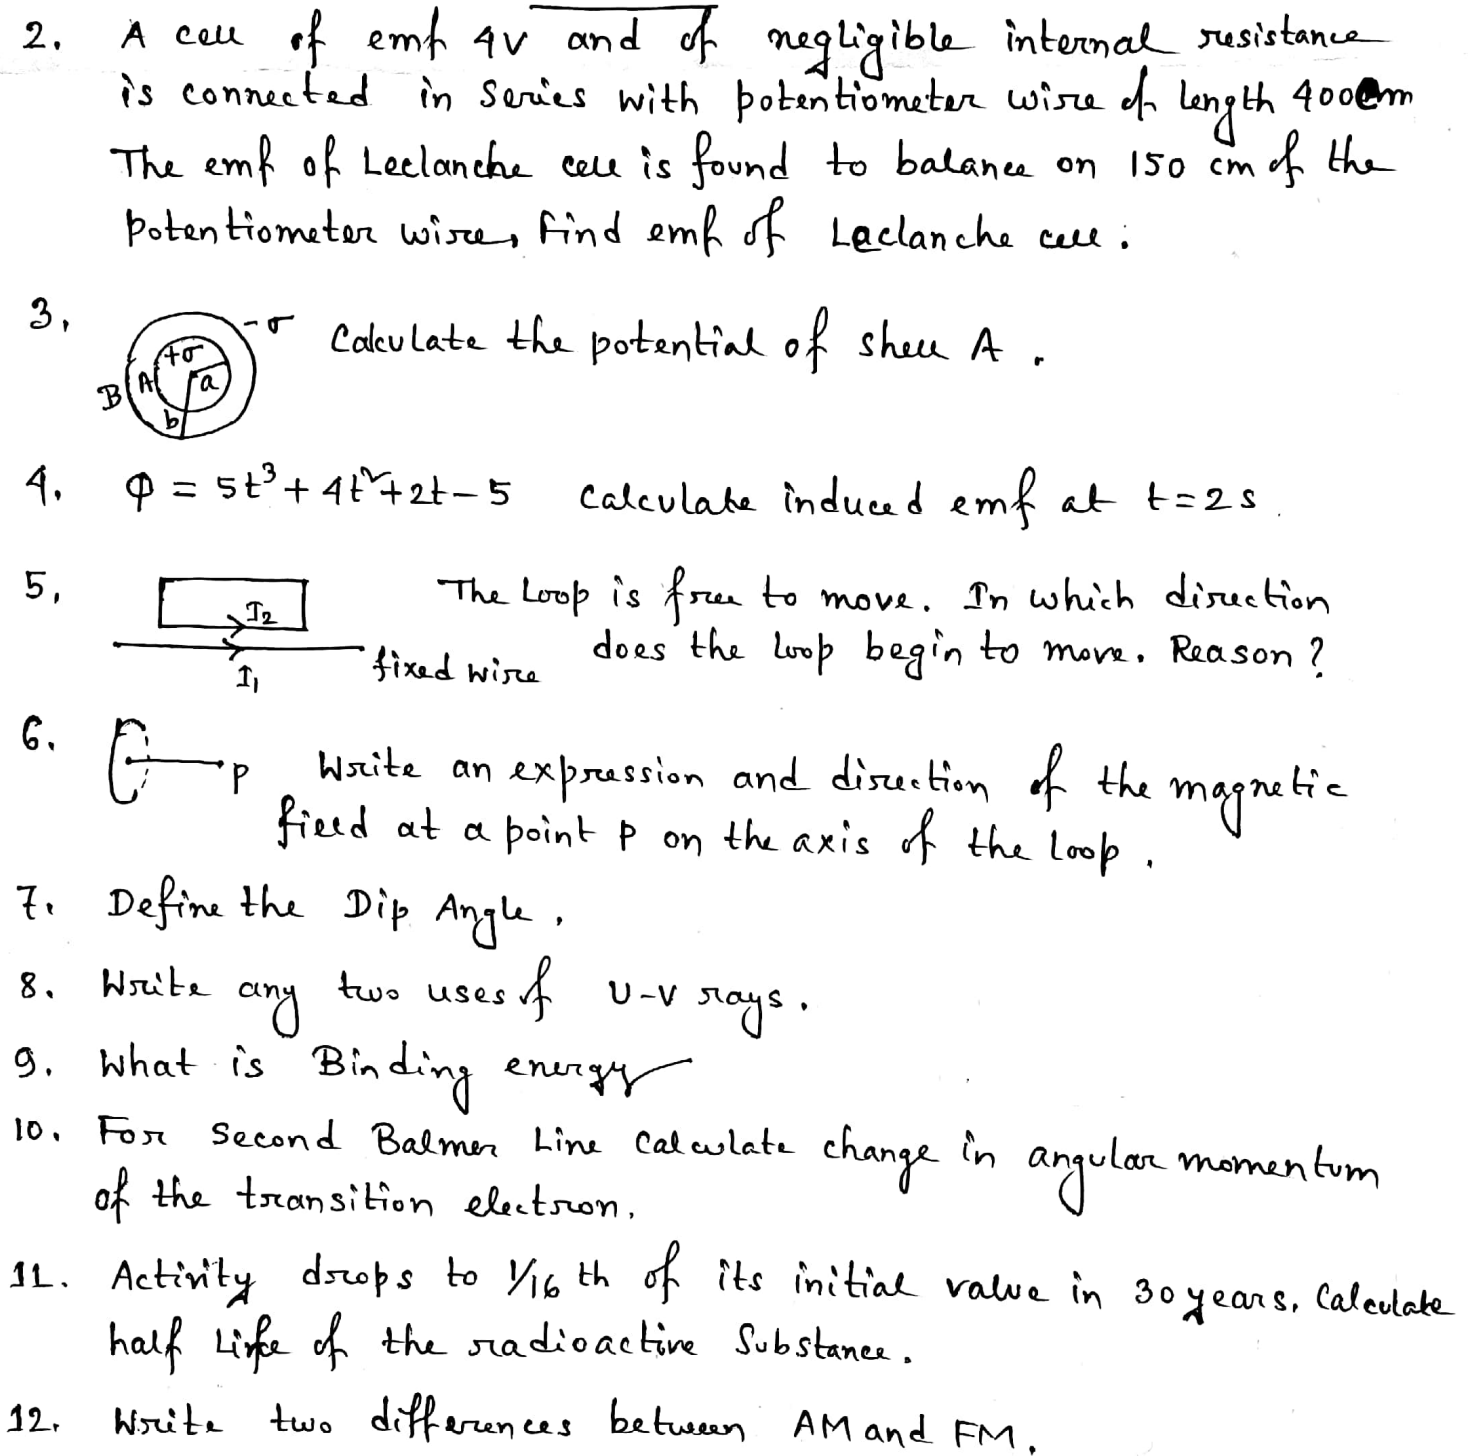 2. A cell of emf 4V and of negligible internal resistance
is connected in series with potentiometer wire of length 400cm
The emf of Leclanche cell is found to balance on 150 cm of the
potentiometer wire, find emf of Laclanche cell.
3. -σ Calculate the potential of shell A.
+σ
B A a
b
4. Φ = 5t³ + 4t² + 2t - 5 Calculate induced emf at t = 2s.
5. I₂ The Loop is free to move. In which direction
does the loop begin to move. Reason?
I₁ fixed wire
6. P Write an expression and direction of the magnetic
field at a point P on the axis of the loop.
7. Define the Dip Angle.
8. Write any two uses of U-V rays.
9. What is Binding energy
10. For Second Balmer Line Calculate change in angular momentum
of the transition electron.
11. Activity drops to 1/16 th of its initial value in 30 years, Calculate
half Life of the radioactive Substance.
12. Write two differences between AM and FM.